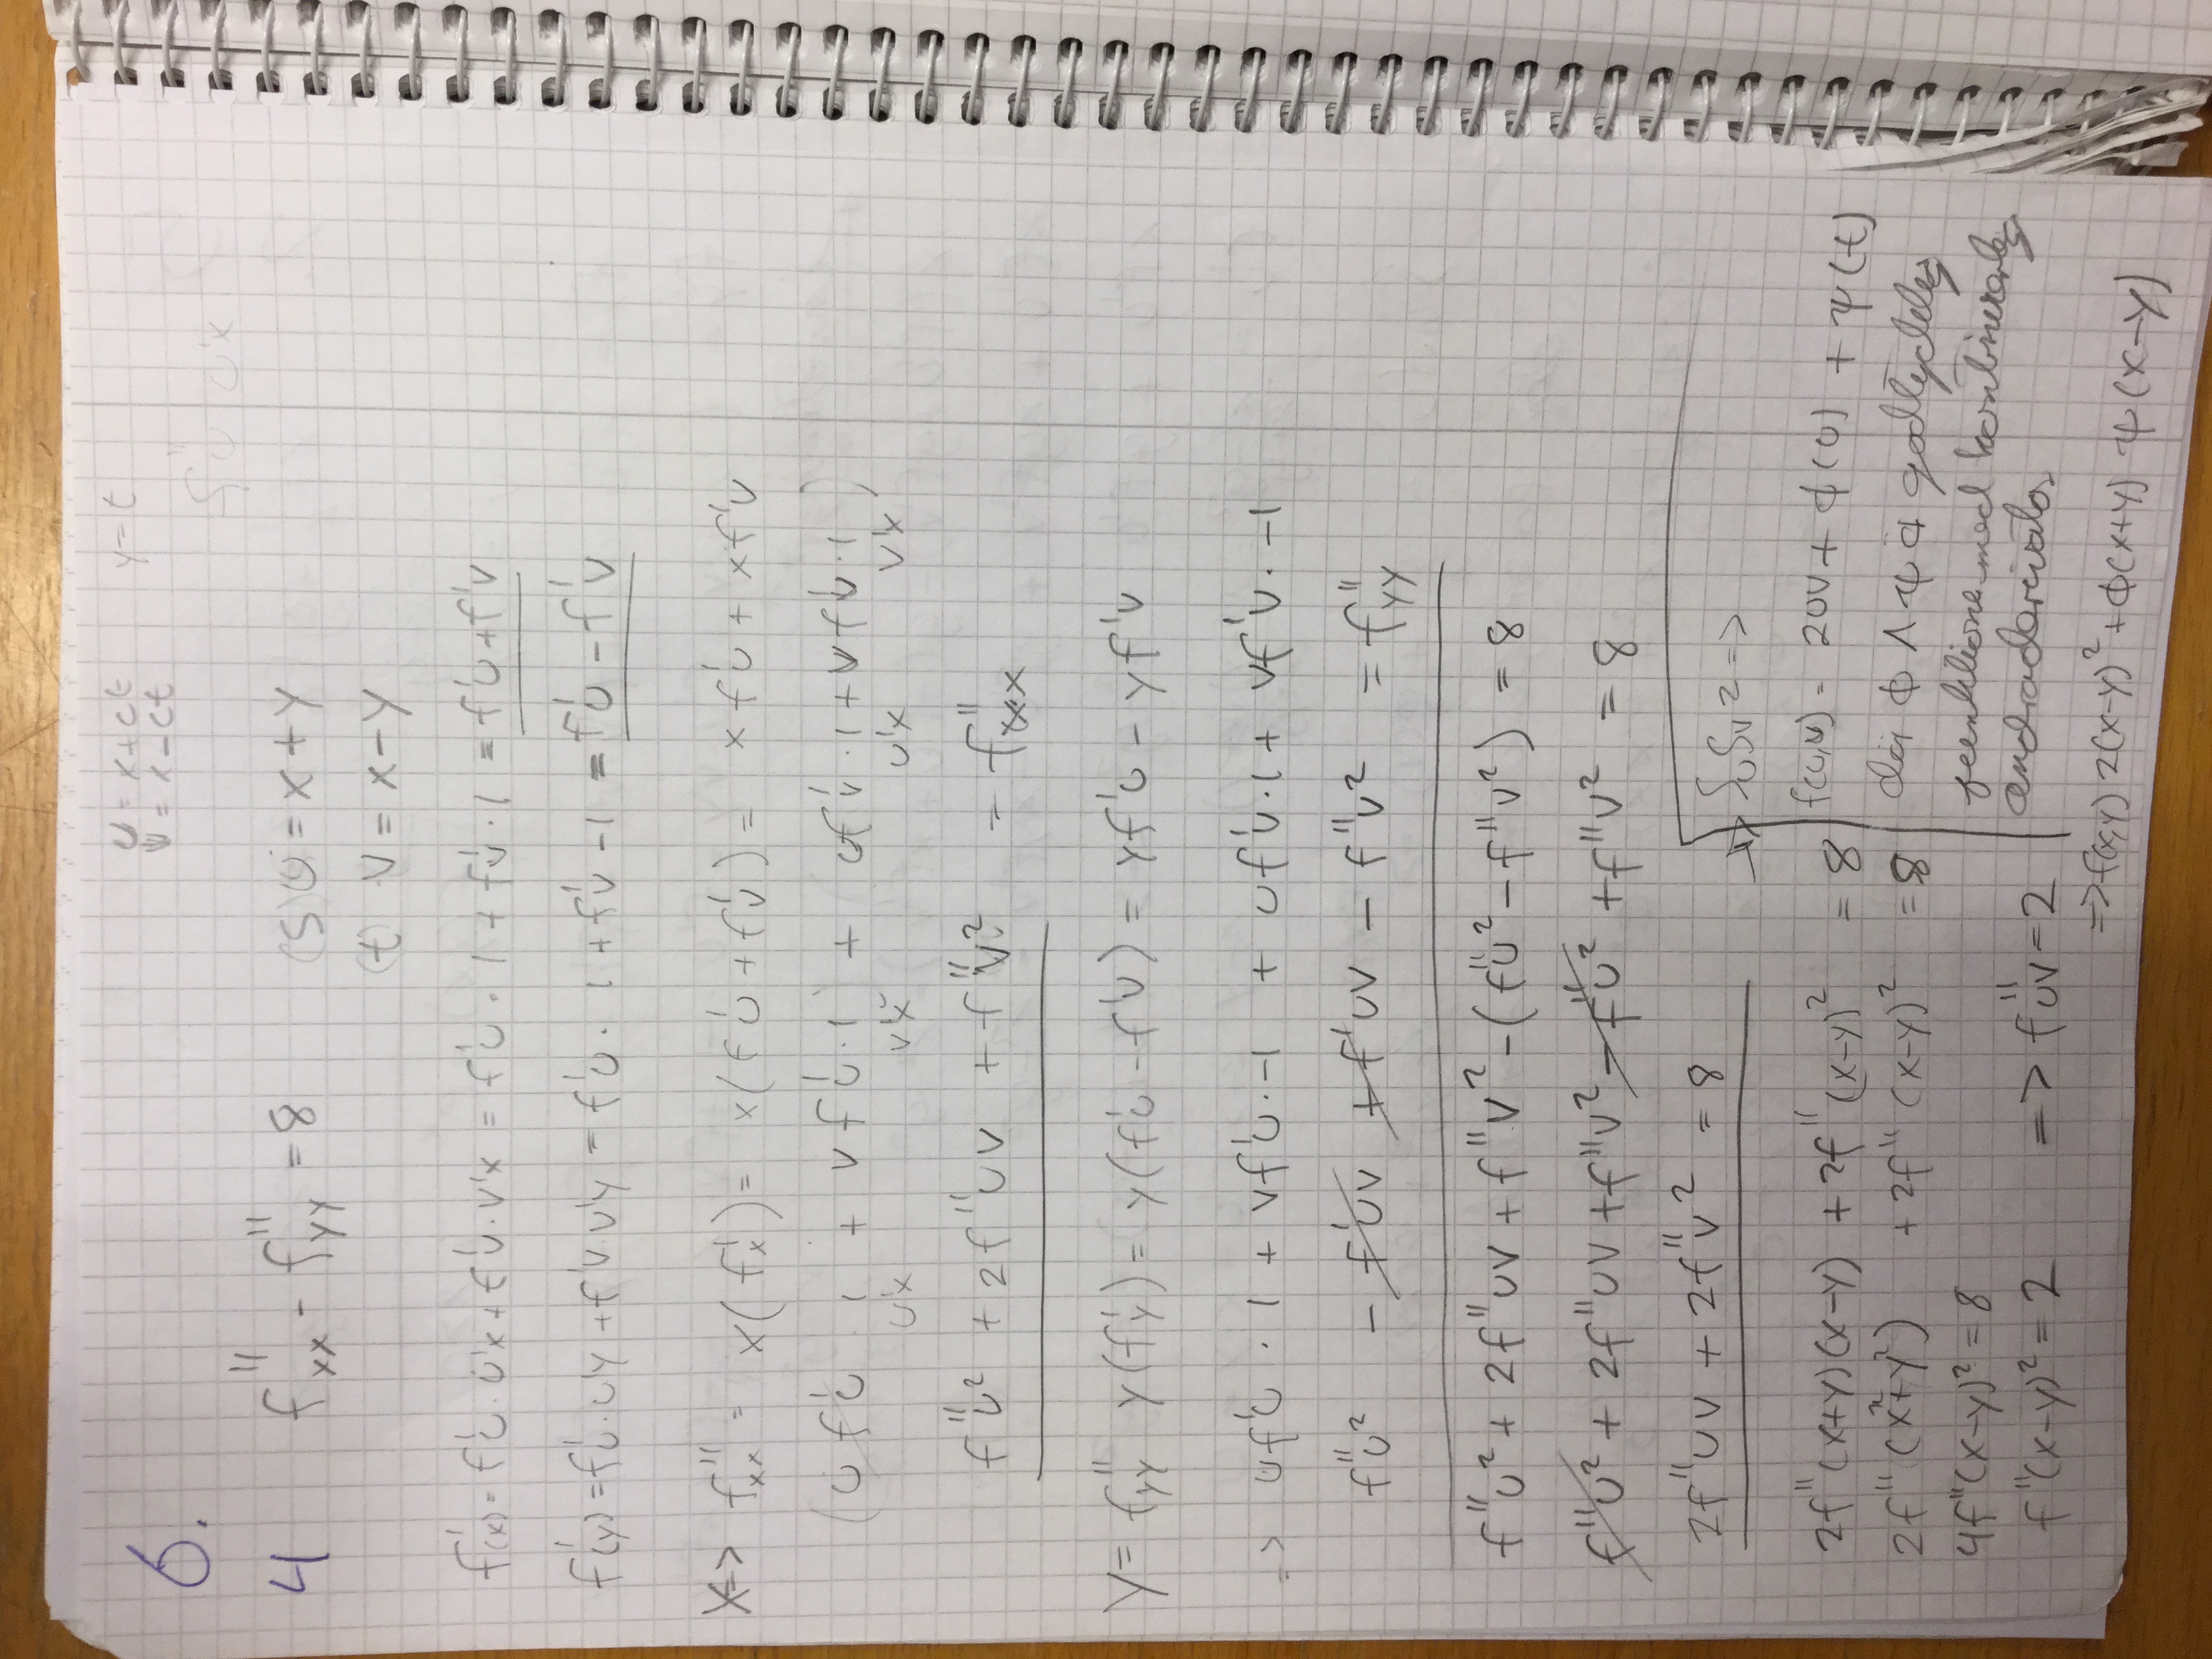 u = x+ct    y=t
v = x-ct
6.
f''u u'x
4    f''xx - f''yy = 8    (s) u = x+y
(t) v = x-y
f'(x) = f'u · u'x + f'v · v'x = f'u · 1 + f'v · 1 = f'u + f'v
f'(y) = f'u · u'y + f'v v'y = f'u · 1 + f'v -1 = f'u - f'v
x=> f''xx = x(f'x) = x(f'u + f'v) = x f'u + x f'v
(u f'u · 1 + v f'u · 1 + u f'v · 1 + v f'v · 1)
u'x    v'x    u'x    v'x
f''u² + 2f''uv + f''v² = f''xx
y= f''yy y(f'y) = y(f'u - f'v) = yf'u - yf'v
=> uf'u · 1 + vf'u · -1 + uf'v · 1 + vf'v · -1
f''u² - f'uv + f'uv - f''v² = f''yy
f''u² + 2f''uv + f''v² - (f''u² - f''v²) = 8
f''u² + 2f''uv + f''v² - f''u² + f''v² = 8
2f''uv + 2f''v² = 8
∫u∫v 2 =>
2f''(x+y)(x-y) + 2f''(x-y)² = 8
f(u,v) = 2uv + ϕ(u) + ψ(t)
2f''(x²+y²) + 2f''(x-y)² = 8
där ϕ ∧ ψ är godtyckliga
4f''(x-y)² = 8
funktioner med kontinuerliga
andraderivator
f''(x-y)² = 2    => f''uv = 2
=> f(x,y) 2(x-y)² + ϕ(x+y) ψ(x-y)